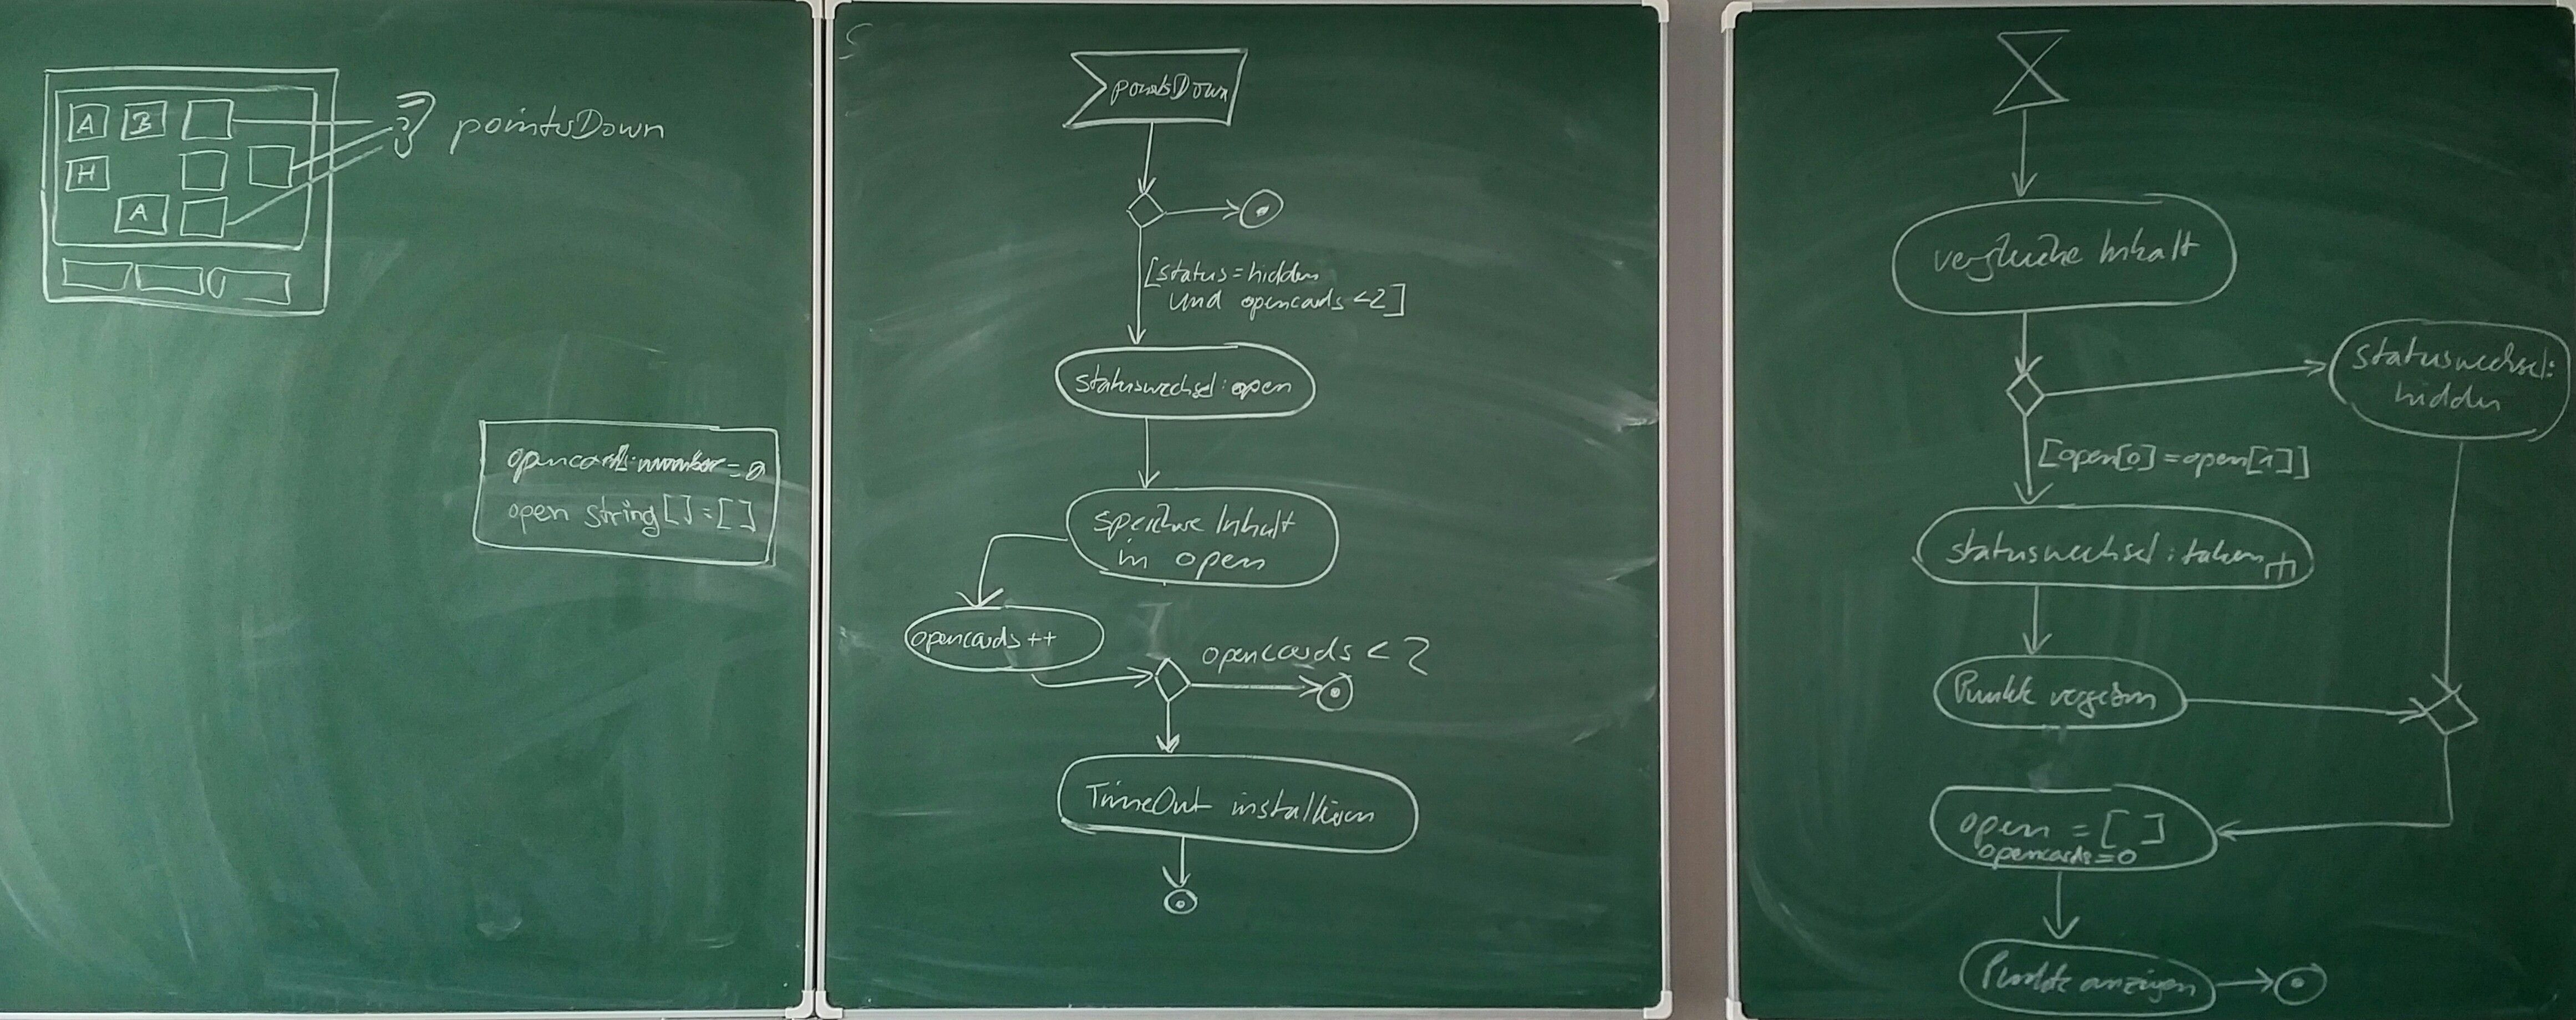 A B
H
A
pointerDown
opencards: number = 0
open string[] = []
pointerDown
[status = hidden
und opencards < 2]
statuswechsel: open
speichere Inhalt
in open
opencards ++
opencards < 2
TimeOut installieren
vergleiche Inhalt
statuswechsel:
hidden
[open[0] = open[1]]
statuswechsel: taken
Punkte vergeben
open = [ ]
opencards = 0
Punkte anzeigen